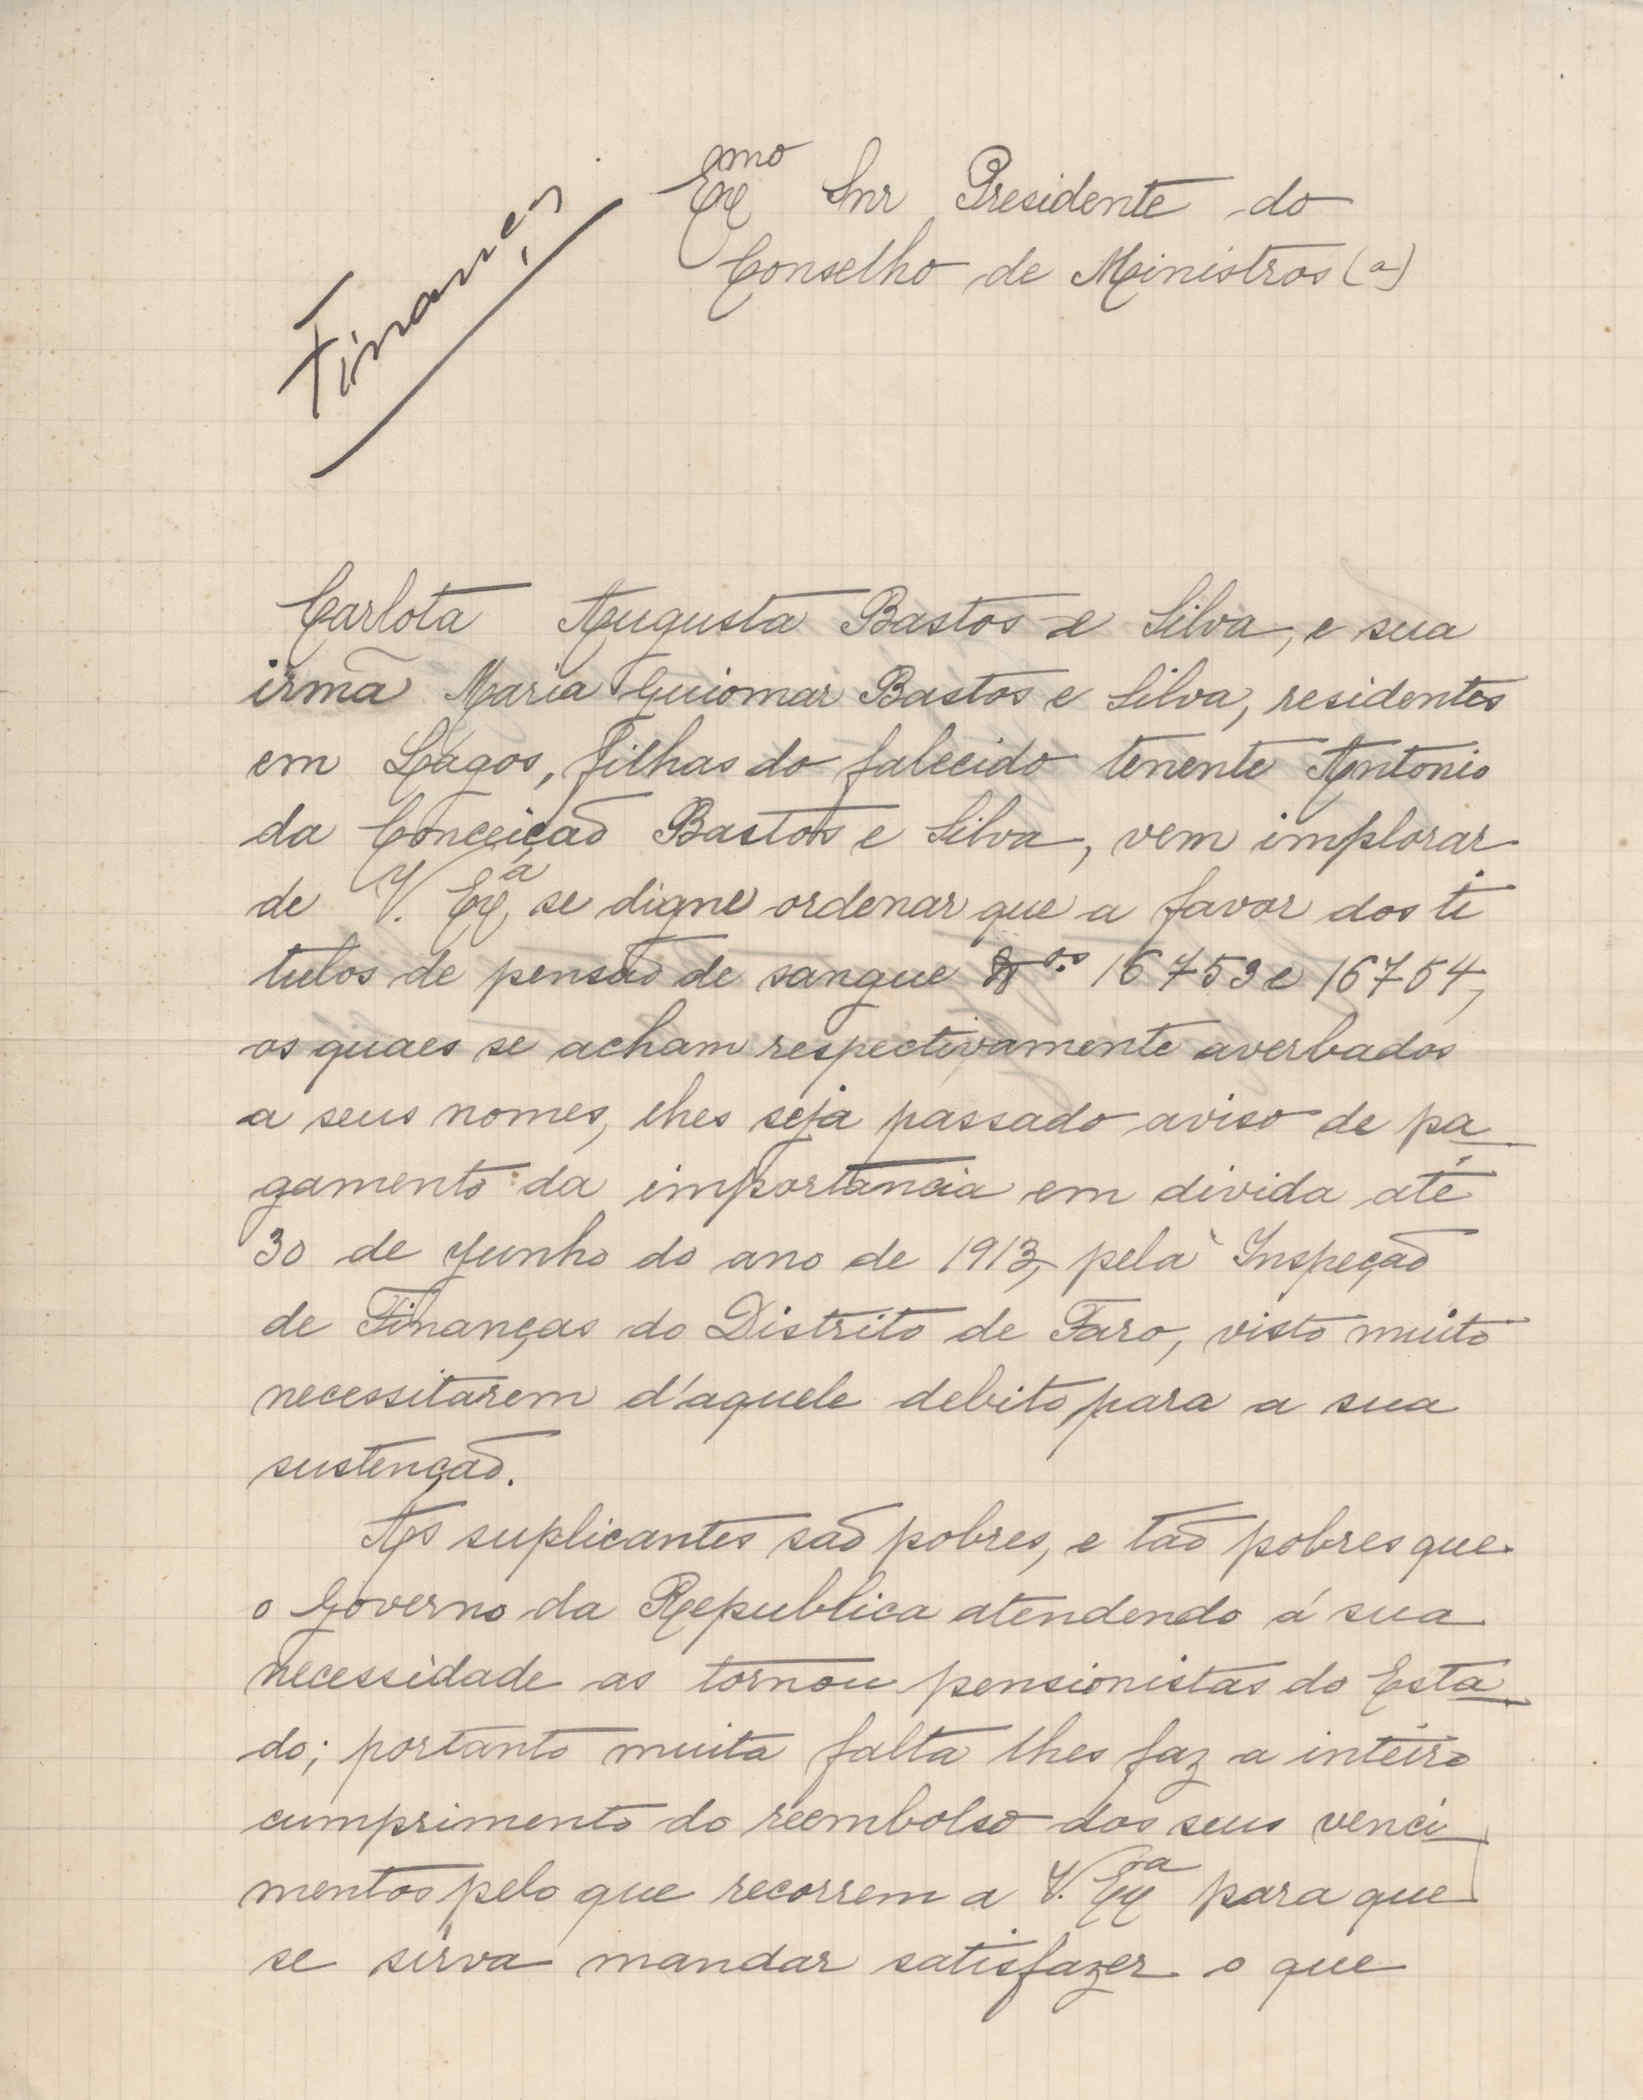 Finanças
Exmo Snr Presidente do
Conselho de Ministros (a)
Carlota Augusta Bastos e Silva, e sua
irmã Maria Guiomar Bastos e Silva, residentes
em Lágos, filhas do falecido tenente Antonio
da Conceição Bastos e Silva, vem implorar
de V. Exª, se digne ordenar que a favor dos ti
tulos de pensão de sangue Nos 16753 e 16754,
os quaes se acham respectivamente averbados
a seus nomes, lhes seja passado aviso de pa
gamento da importancia em divida até
30 de Junho do ano de 1913, pela Inspeção
de Finanças do Distrito de Faro, visto muito
necessitarem d'aquele debito para a sua
sustenção.
As suplicantes são pobres, e tão pobres que
o Governo da Republica atendendo á sua
necessidade as tornou pensionistas do Esta
do; portanto muita falta lhes faz a inteiro
cumprimento do reembolso dos seus venci
mentos pelo que recorrem a V. Exª para que
se sirva mandar satisfazer o que